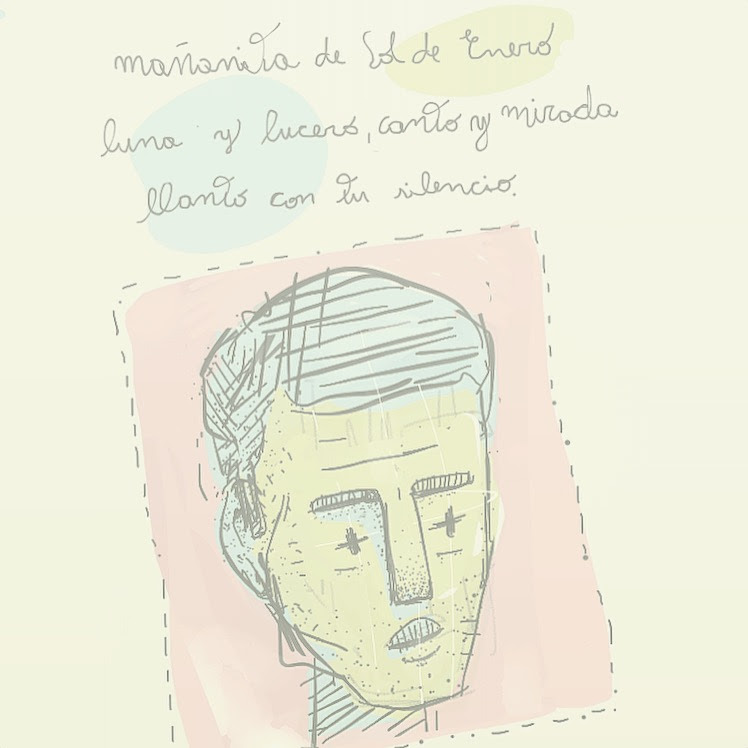 mañanita de Sol de Enero
luna y lucero, canto y mirada
llanto con tu silencio.